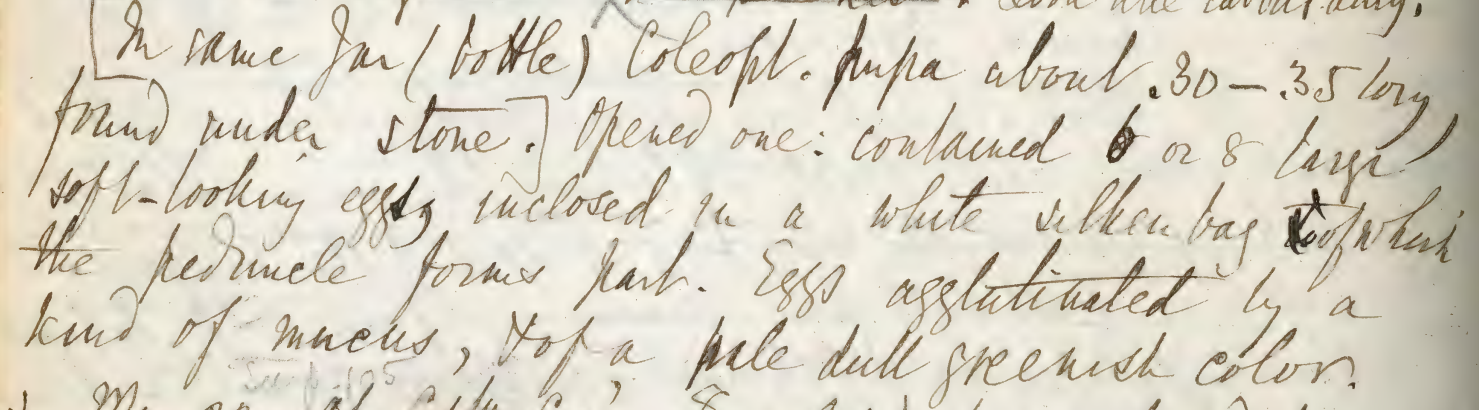 [In same Jar (bottle) Coleopt. pupa about .30 — .35 long
found under stone.] Opened one: contained 6 or 8 large
soft-looking eggs, inclosed in a white silken bag of which
the peduncle forms part. Eggs agglutinated by a
kind of mucus, & of a pale dull greenish color.